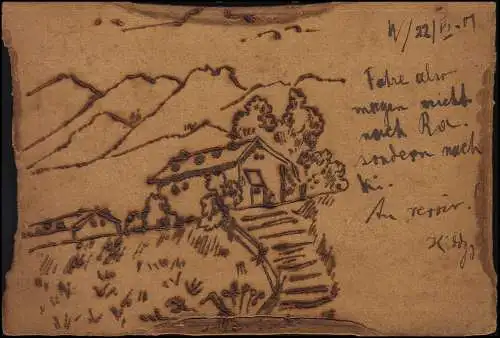 W/22/VI.01
Fahre also
morgen nicht
nach Ra.
sondern nach
Ki.
Au revoir.